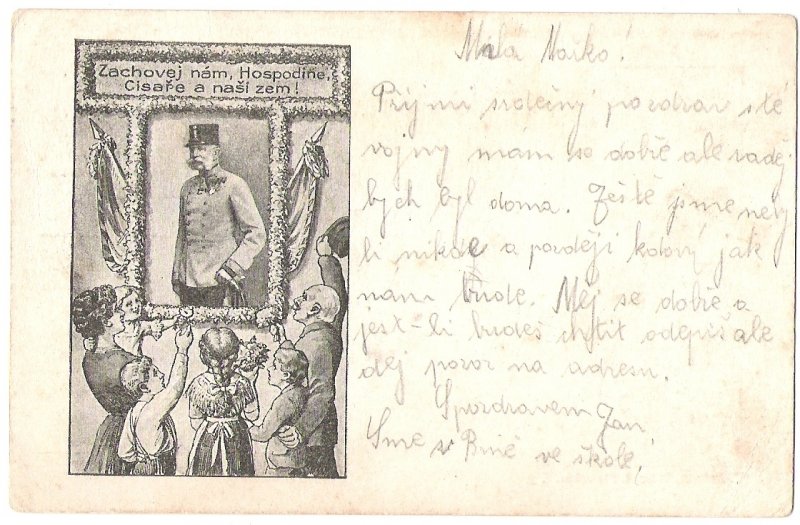 Zachovej nám, Hospodine,
Cisaře a naší zem!
Milá
Přijmi srdečný pozdrav sté
vojny mám se dobře ale raděj
bych byl doma. Ještě jsme nevy
li nikde a později jak
nám bude. Měj se dobře a
jest-li budeš chtít odepiš ale
dej pozor na adresu.
Spozdravem Jan
Sme v Brně ve škole,